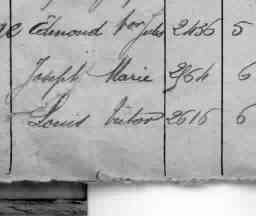 Edmond 2436 5
Joseph Marie 2564 6
Louis Victor 2616 6